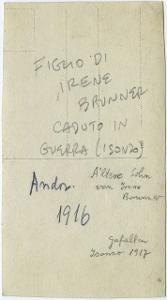 FIGLIO DI
IRENE
BRUNNER
CADUTO IN
GUERRA (ISONZO)
Andr.
Ältere Sohn
von Irene
Brunner
1916
gefallen
Isonzo 1917